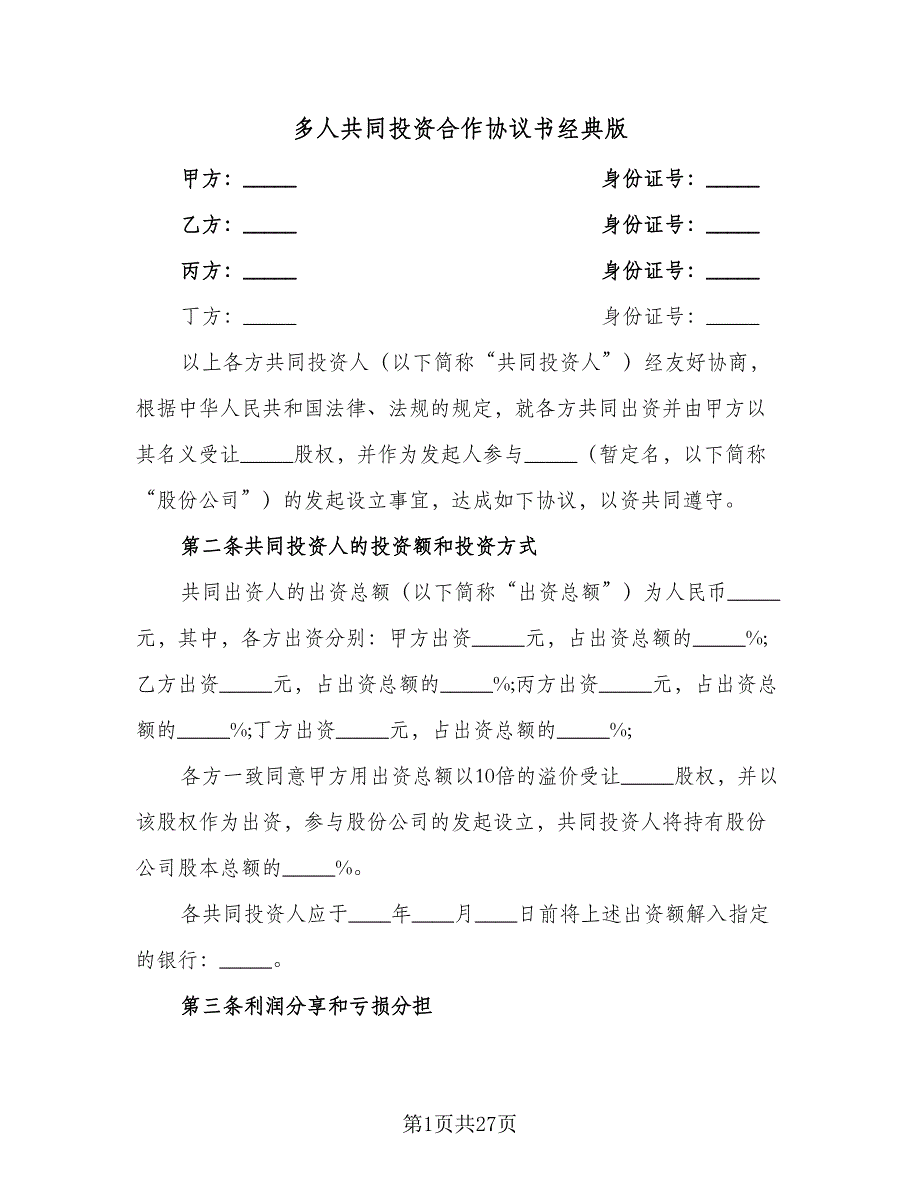 多人共同投资合作协议书经典版
甲方：_____ 身份证号：_____
乙方：_____ 身份证号：_____
丙方：_____ 身份证号：_____
丁方：_____ 身份证号：_____
以上各方共同投资人（以下简称“共同投资人”）经友好协商，
根据中华人民共和国法律、法规的规定，就各方共同出资并由甲方以
其名义受让_____股权，并作为发起人参与_____（暂定名，以下简称
“股份公司”）的发起设立事宜，达成如下协议，以资共同遵守。
第二条共同投资人的投资额和投资方式
共同出资人的出资总额（以下简称“出资总额”）为人民币_____
元，其中，各方出资分别：甲方出资_____元，占出资总额的_____%;
乙方出资_____元，占出资总额的_____%;丙方出资_____元，占出资总
额的_____%;丁方出资_____元，占出资总额的_____%;
各方一致同意甲方用出资总额以10倍的溢价受让_____股权，并以
该股权作为出资，参与股份公司的发起设立，共同投资人将持有股份
公司股本总额的_____%。
各共同投资人应于____年____月____日前将上述出资额解入指定
的银行：_____。
第三条利润分享和亏损分担
第1页共27页